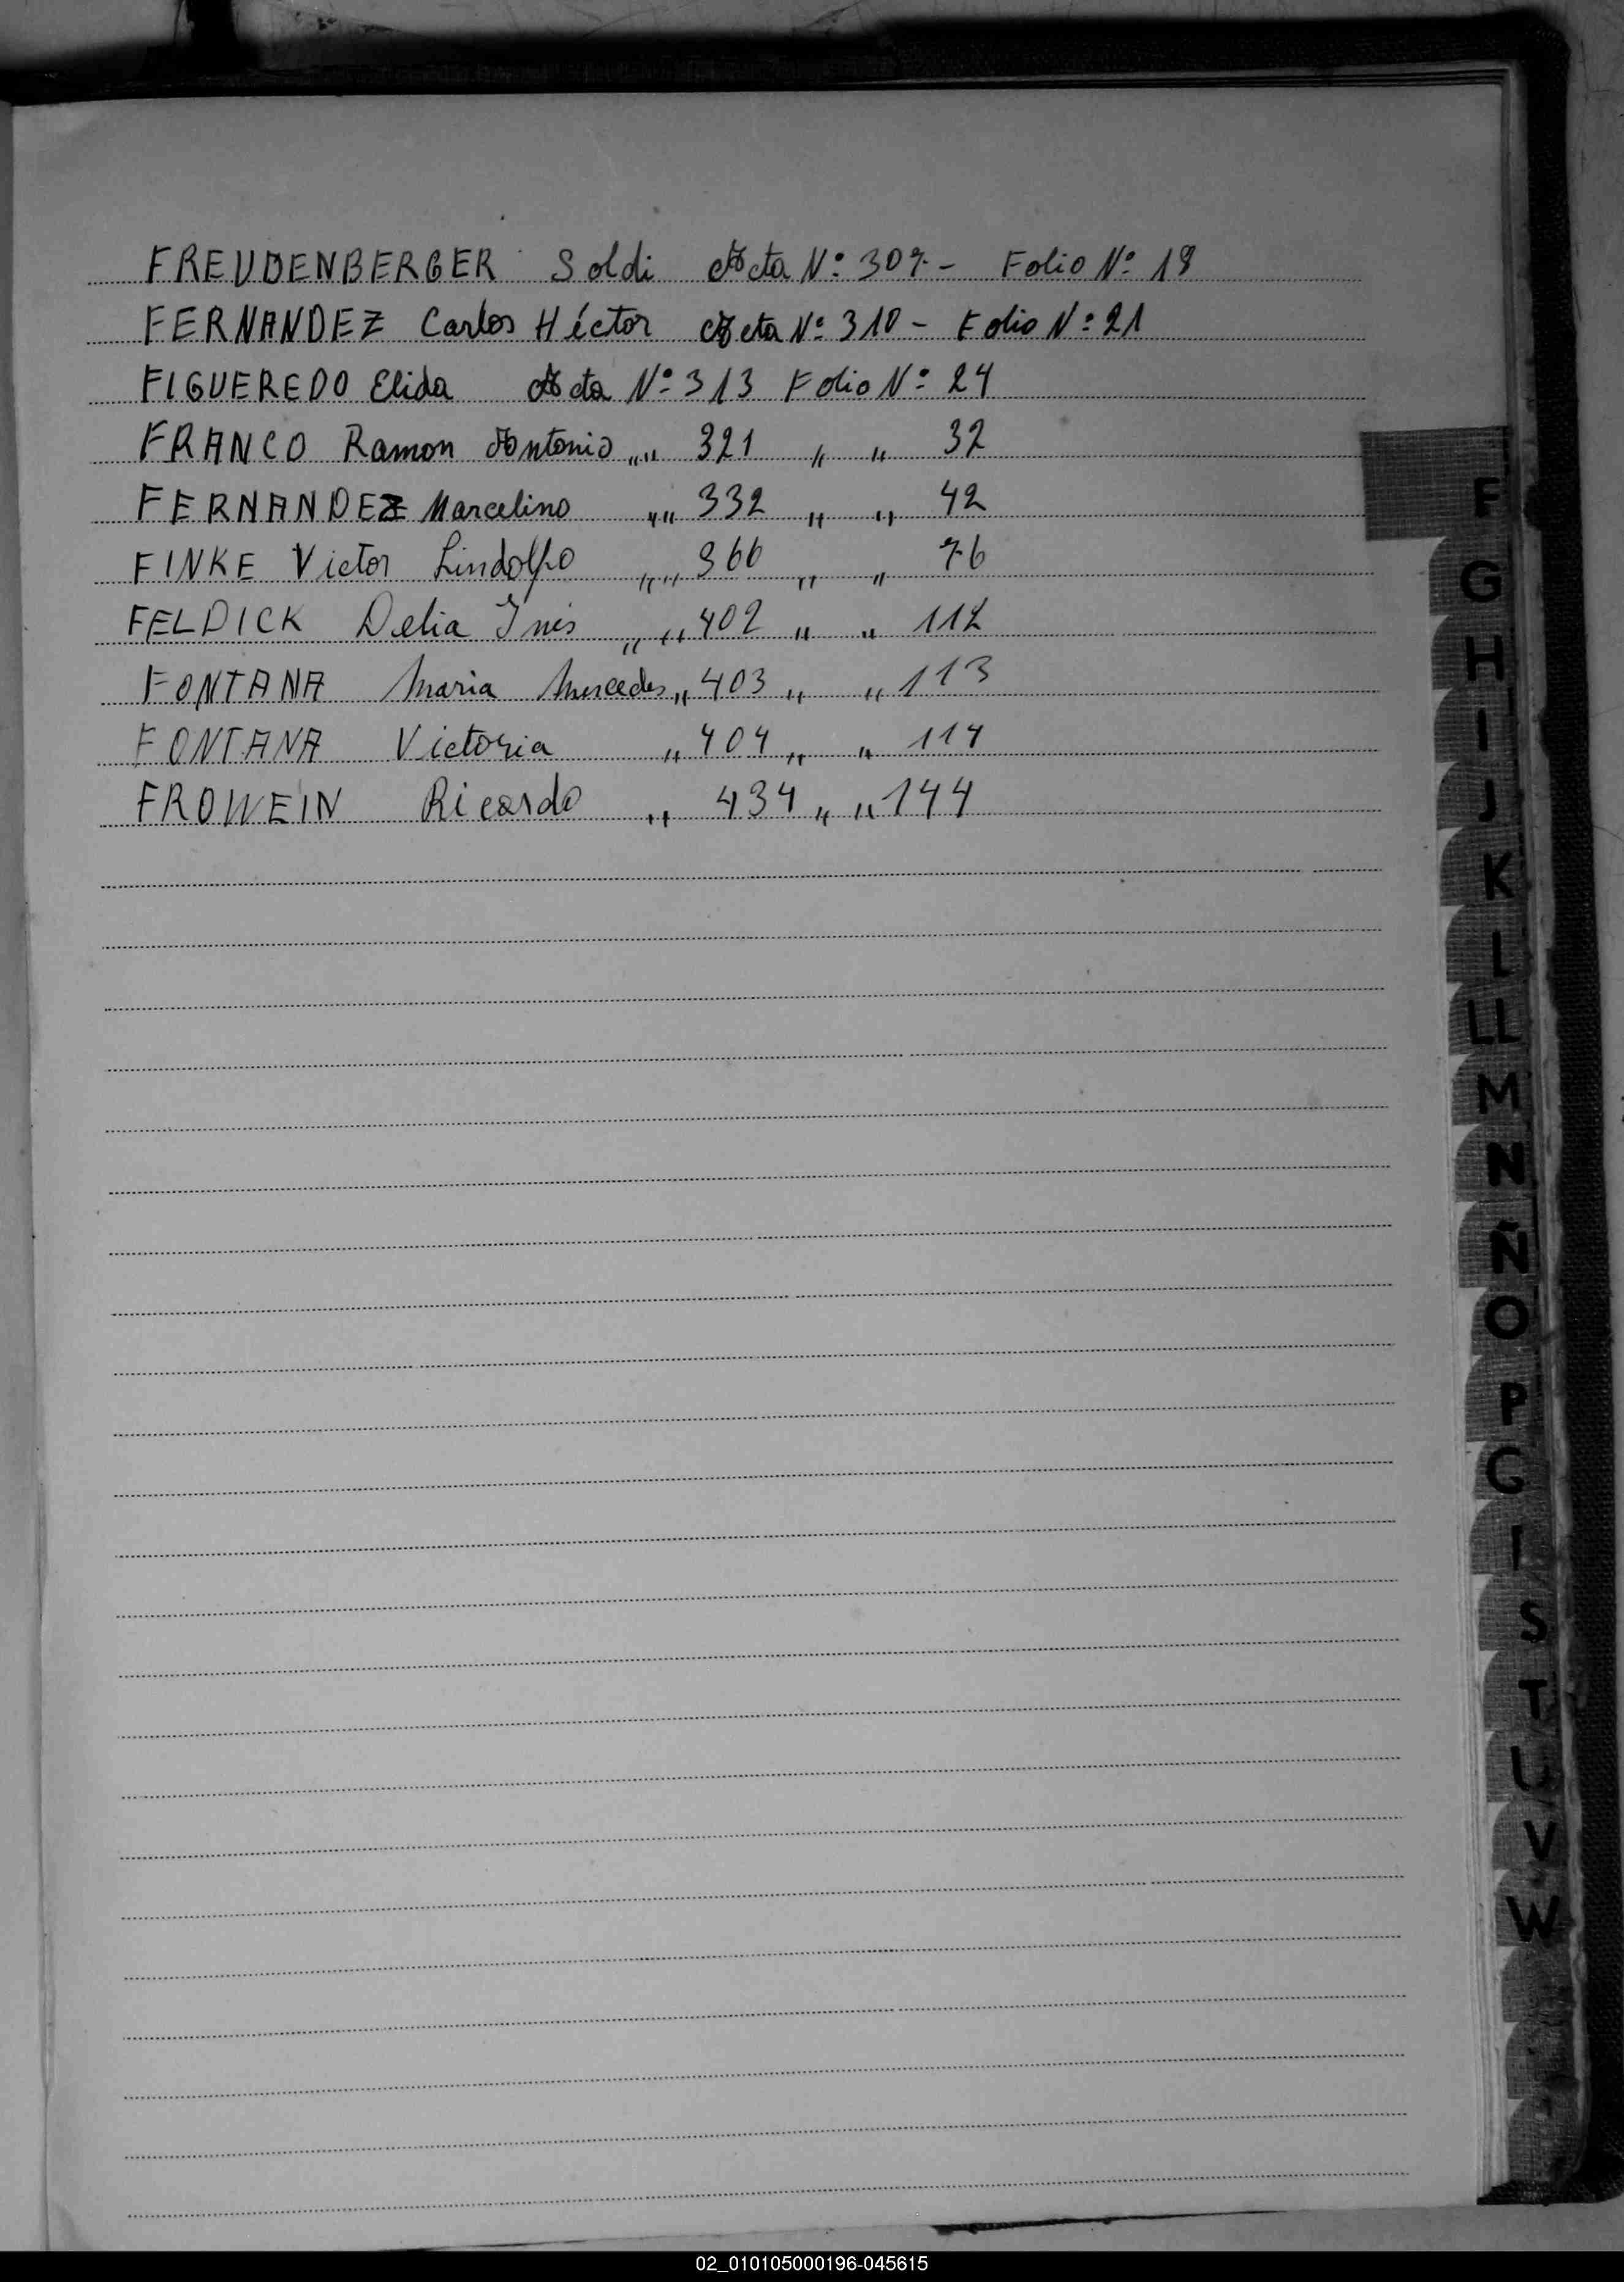 FREUDENBERGER Soldi Acta Nº 307 - Folio Nº 18
FERNANDEZ Carlos Héctor Acta Nº 310 - Folio Nº 21
FIGUEREDO Elida Acta Nº 313 Folio Nº 24
FRANCO Ramon Antonio „ „ 321 „ „ 32
FERNANDEZ Marcelino „ „ 332 „ „ 42
FINKE Victor Lindolfo „ „ 366 „ „ 76
FELDICK Delia Inés „ „ 402 „ „ 112
FONTANA Maria Mercedes „ 403 „ „ 113
FONTANA Victoria „ 404 „ „ 114
FROWEIN Ricardo „ 434 „ „ 144
F
G
H
I
J
K
L
LL
M
N
Ñ
O
P
S
T
U
V
W
02_010105000196-045615